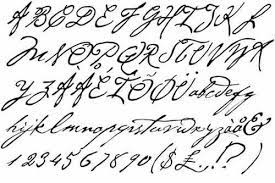 A B C D E F G H I J K L
M N O P Q R S T U V W X
Y Z À Å É Î Õ Ø Ü a b c d e f g
h i j k l m n o p q r s t u v w x y z à å é &
1 2 3 4 5 6 7 8 9 0 ( $ £ . , ! ? )